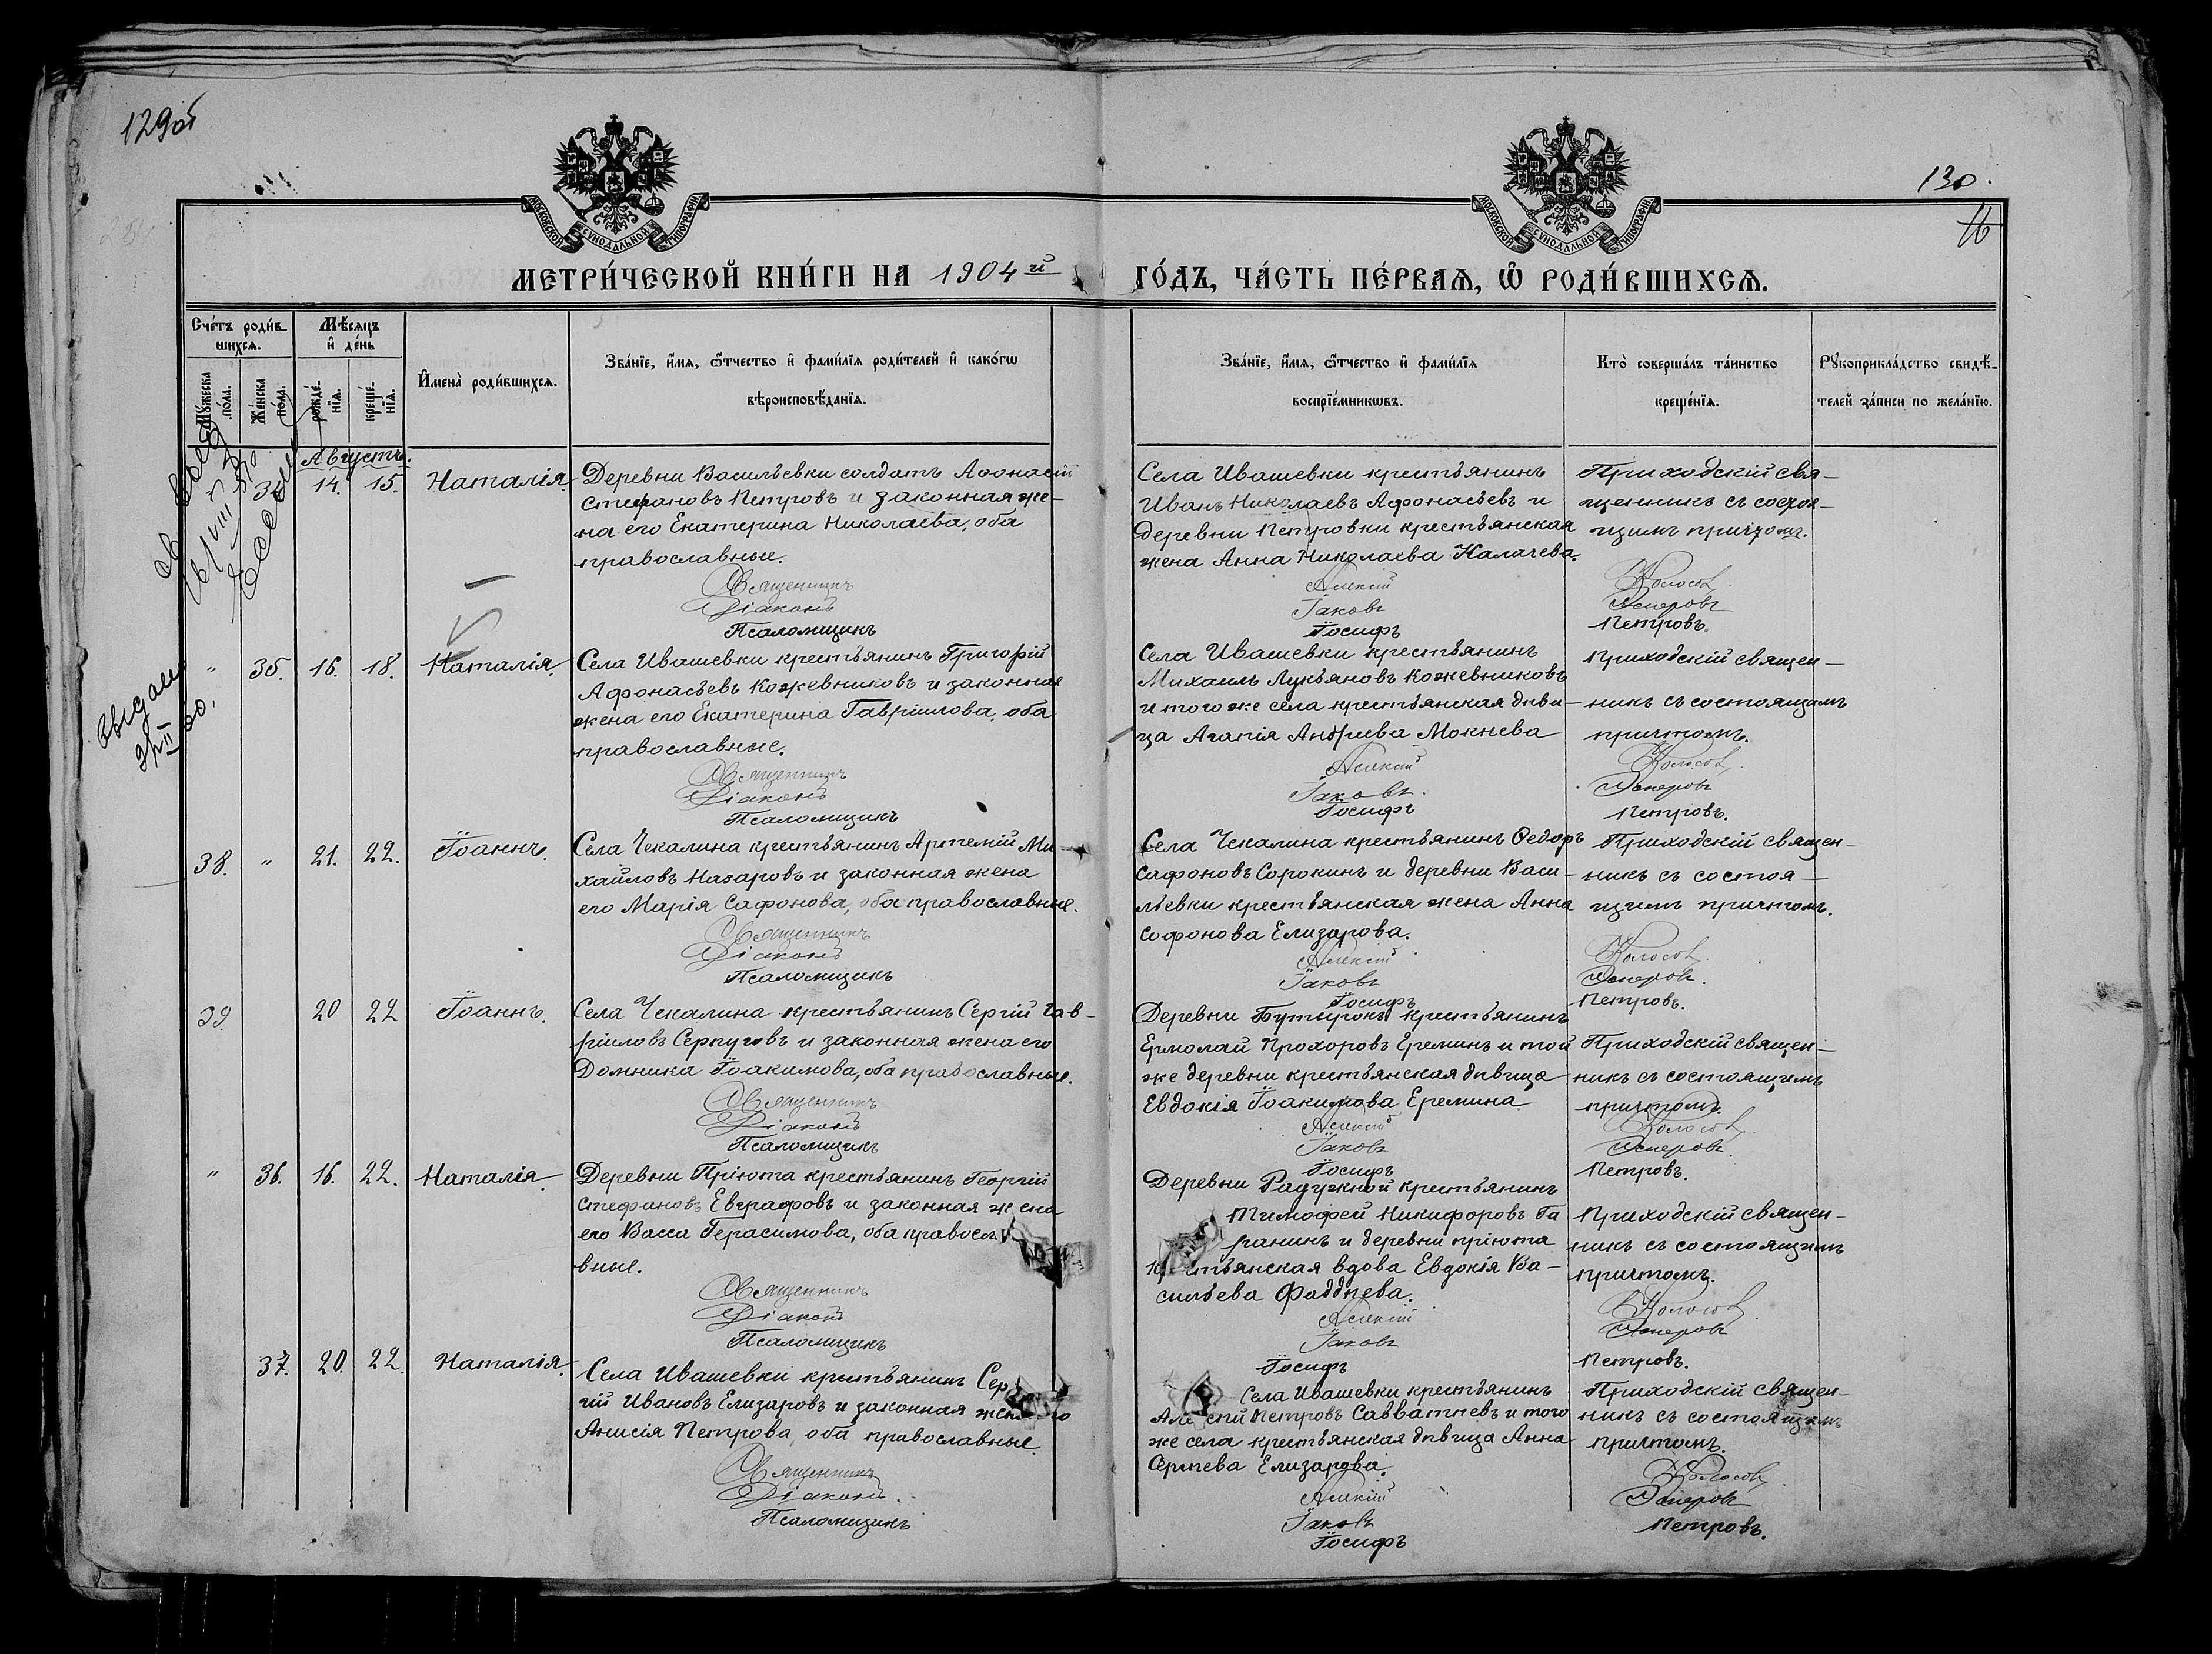 129об
130.
16
МОСКОВСКОЙ СѴНОДАЛЬНОЙ ТИПОГРАФІИ
МОСКОВСКОЙ СѴНОДАЛЬНОЙ ТИПОГРАФІИ
МЕТРИ́ЧЕСКОЙ КНИ́ГИ НА 1904й ГО́ДЪ, ЧА́СТЬ ПЕ́РВАѦ, Ѡ҆ РОДИ́ВШИХСѦ.
Сче́тъ роди́в-
шихсѧ.
Мѣ́сѧцъ
и҆ де́нь
Мꙋ́жеска по́ла.
Же́нска по́ла.
рожде́-
нїѧ.
креще́-
нїѧ.
И҆мена̀ роди́вшихсѧ.
Зва́нїе, и҆́мѧ, ѻ҆́тчество и҆ фами́лїѧ роди́телей и҆ како́гѡ
вѣроисповѣ́данїѧ.
Зва́нїе, и҆́мѧ, ѻ҆́тчество и҆ фами́лїѧ
воспрїе́мникѡвъ.
Кто̀ соверша́лъ та́инство
креще́нїѧ.
Рꙋкоприкла́дство свидѣ́-
телей за́писи по жела́нїю.
Августъ.
34 14. 15. Наталія.
Деревни Васильевки солдатъ Афонасій
Стефановъ Петровъ и законная же-
на его Екатерина Николаева, оба
православные.
Священникъ
Діаконъ
Псаломщикъ
Села Ивашевки крестьянинъ
Иванъ Николаевъ Афонасьевъ и
деревни Петровки крестьянская
жена Анна Николаева Калачева.
Алексій
Іаковъ
Іосифъ
Приходскій свя-
щенникъ съ состоя-
щимъ причтомъ.
Колосовъ
Петровъ.
выдан
" 35. 16. 18. Наталія.
Села Ивашевки крестьянинъ Григорій
Афонасьевъ Кожевниковъ и законная
жена его Екатерина Гавріилова, оба
православные.
Священникъ
Діаконъ
Псаломщикъ
Села Ивашевки крестьянинъ
Михаилъ Лукьяновъ Кожевниковъ
и того же села крестьянская дѣви-
ца Агапія Андреева Мокнева
Алексій
Іаковъ.
Іосифъ
Приходскій священ-
никъ съ состоящимъ
причтомъ.
Колосовъ
Петровъ.
38. " 21. 22. Іоаннъ.
Села Чекалина крестьянинъ Артемій Ми-
хайловъ Назаровъ и законная жена
его Марія Сафонова, оба православные.
Священникъ
Діаконъ
Псаломщикъ
Села Чекалина крестьянинъ Ѳедоръ
Сафоновъ Сорокинъ и деревни Васи-
льевки крестьянская жена Анна
Софонова Елизарова.
Алексій
Іаковъ
Іосифъ
Приходскій священ-
никъ съ состоя-
щимъ причтомъ.
Колосовъ
Петровъ.
39. 20 22 Іоаннъ.
Села Чекалина крестьянинъ Сергій Гав-
ріиловъ Серпуговъ и законная жена его
Домника Іоакимова, оба православные.
Священникъ
Діаконъ
Псаломщикъ
Деревни Бутырокъ крестьянинъ
Ермолай Прохоровъ Ереминъ и той
же деревни крестьянская дѣвица
Евдокія Іоакимова Еремина
Алексій
Іаковъ
Іосифъ
Приходскій священ-
никъ съ состоящимъ
причтомъ.
Колосовъ
Петровъ.
" 36. 16. 22. Наталія.
Деревни Пріюта крестьянинъ Георгій
Стефановъ Евграфовъ и законная жена
его Васса Герасимова, оба правосл
вные.
Священникъ
Діаконъ
Псаломщикъ
Деревни Радужной крестьянинъ
Тимофей Никифоровъ Га
ранинъ и деревни пріюта
стьянская вдова Евдокія Ва-
сильева Фаддѣева.
Алексій
Іаковъ
Іосифъ
Приходскій священ-
никъ съ состоящимъ
причтомъ.
Колосовъ
Петровъ.
37. 20. 22. Наталія.
Села Ивашевки крестьянинъ Сер
гій Ивановъ Елизаровъ и законная жена его
Анисія Петрова, оба православные.
Священникъ
Діаконъ.
Псаломщикъ
Села Ивашевки крестьянинъ
Але сій Петровъ Савватѣевъ и того
же села крестьянская дѣвица Анна
Сергѣева Елизарова.
Алексій
Іаковъ
Іосифъ
Приходскій священ-
никъ съ состоящимъ
причтомъ.
Колосовъ
Петровъ.